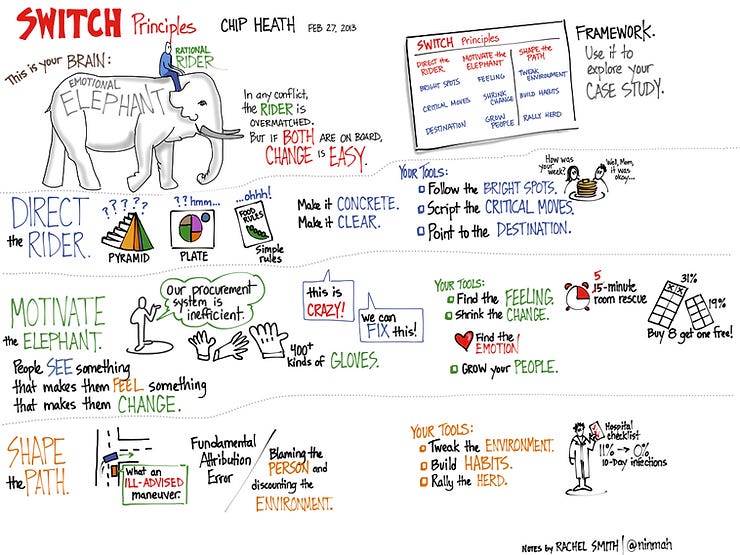 SWITCH Principles CHIP HEATH FEB 27, 2013
This is your BRAIN:
RATIONAL
RIDER
EMOTIONAL
ELEPHANT
In any conflict,
the RIDER is
OVERMATCHED.
BUT IF BOTH ARE ON BOARD,
CHANGE is EASY.
SWITCH Principles
DIRECT the
RIDER
BRIGHT SPOTS
CRITICAL MOVES
DESTINATION
MOTIVATE the
ELEPHANT
FEELING
SHRINK
CHANGE
GROW
PEOPLE
SHAPE the
PATH
TWEAK
ENVIRONMENT
BUILD HABITS
RALLY HERD
FRAMEWORK.
Use it to
explore your
CASE STUDY.
DIRECT
the RIDER.
? ? ? ? ?
PYRAMID
? ? hmm...
PLATE
...ohhh!
FOOD
RULES
Simple
rules
Make it CONCRETE.
Make it CLEAR.
YOUR TOOLS:
Follow the BRIGHT SPOTS.
Script the CRITICAL MOVES.
Point to the DESTINATION.
How was
your
week?
Well, Mom,
it was
okay...
MOTIVATE
the ELEPHANT.
People SEE something
that makes them FEEL something
that makes them CHANGE.
Our procurement
system is
inefficient.
400+
kinds of GLOVES.
this is
CRAZY!
we can
FIX this!
YOUR TOOLS:
Find the FEELING.
Shrink the CHANGE.
Find the
EMOTION!
GROW your PEOPLE.
5
15-minute
room rescue
X X
31%
19%
Buy 8 get one free!
SHAPE
the PATH.
What an
ILL-ADVISED
maneuver.
Fundamental
Attribution
Error
Blaming the
PERSON and
discounting the
ENVIRONMENT.
YOUR TOOLS:
Tweak the ENVIRONMENT.
Build HABITS.
Rally the HERD.
Hospital
checklist
11% → 0%
10-Day infections
NOTES by RACHEL SMITH | @ninmah